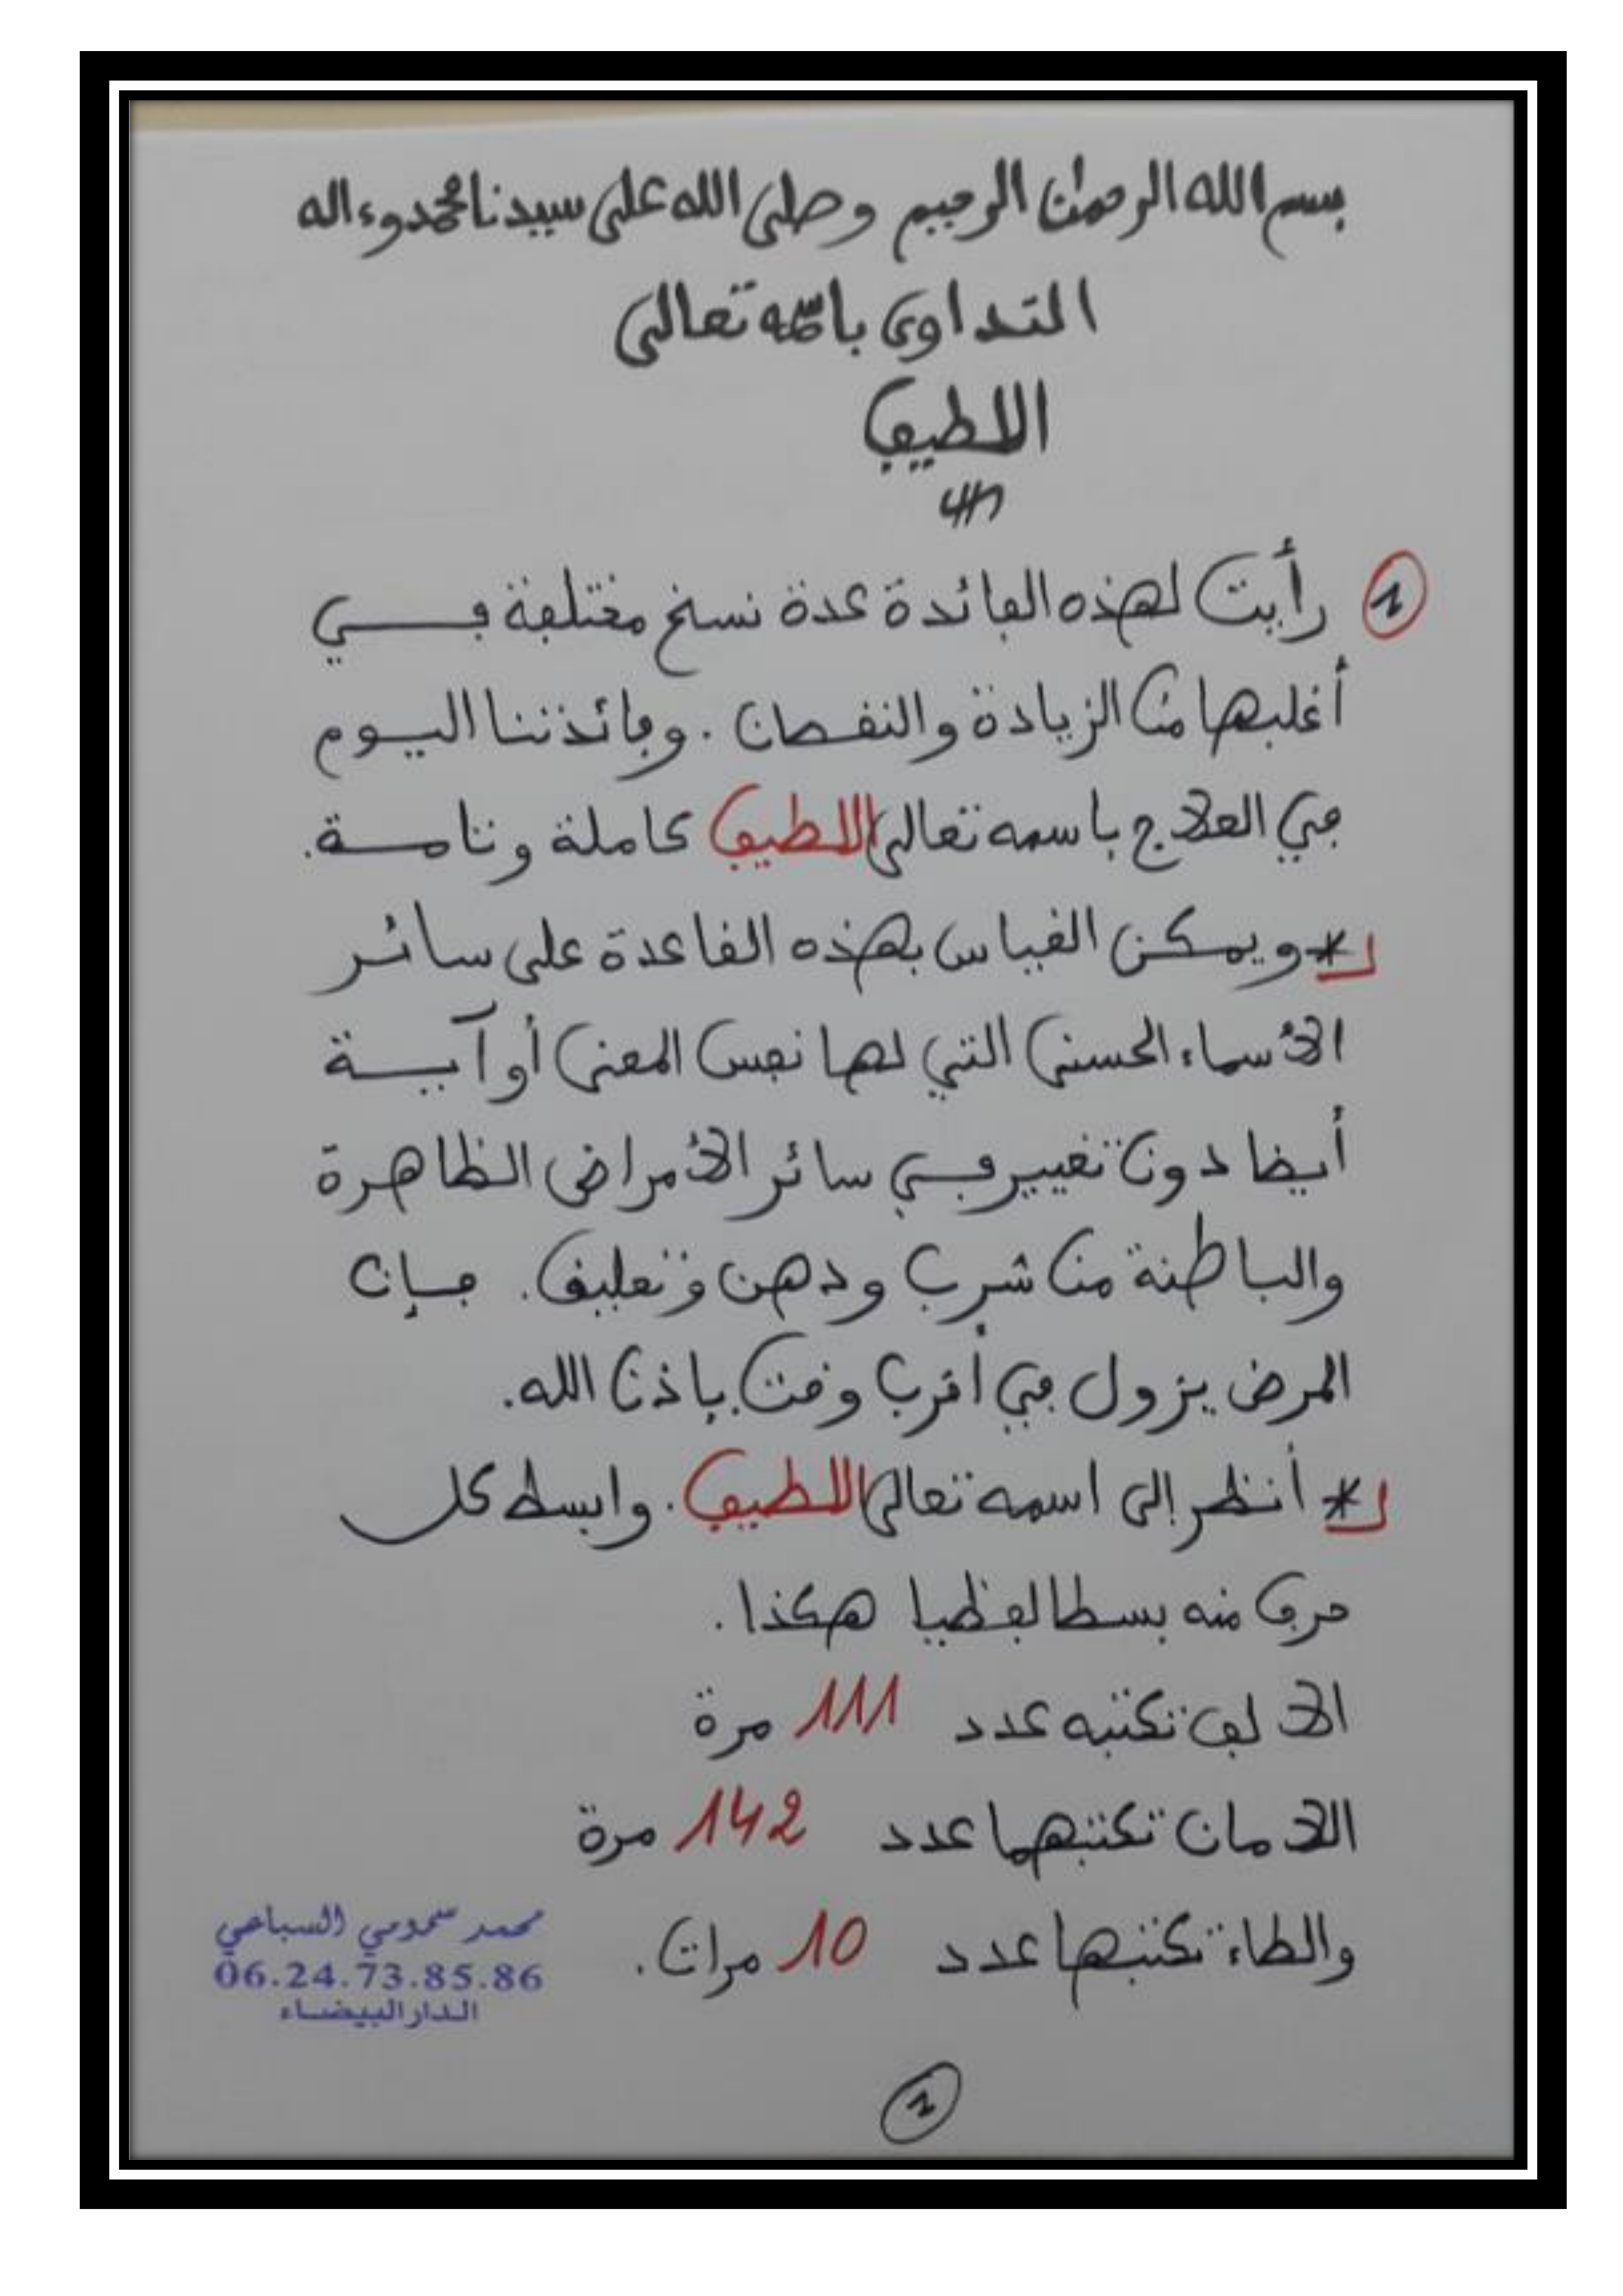 بسم الله الرحمان الرحيم وصلى الله على سيدنا محمد وءاله
التداوى باسمه تعالى
اللطيف
1 رأيت لهذه الفائدة عدة نسخ مختلفة في
أغلبها من الزيادة والنقصان . وفائدتنا اليوم
في العلاج باسمه تعالى اللطيف كاملة وتامة.
* ويمكن القياس بهذه القاعدة على سائر
الأسماء الحسنى التي لها نفس المعنى أو آية
أيضا دون تغيير في سائر الأمراض الظاهرة
والباطنة من شرب ودهن وتعليق. فإن
المرض يزول في أقرب وقت بإذن الله.
* أنظر إلى اسمه تعالى اللطيف. وابسط كل
حرف منه بسطا لفظيا هكذا.
الألف تكتبه عدد 111 مرة
اللامان تكتبهما عدد 142 مرة
والطاء تكتبها عدد 10 مرات.
محمد سمومي السباعي
06.24.73.85.86
الدار البيضاء
1